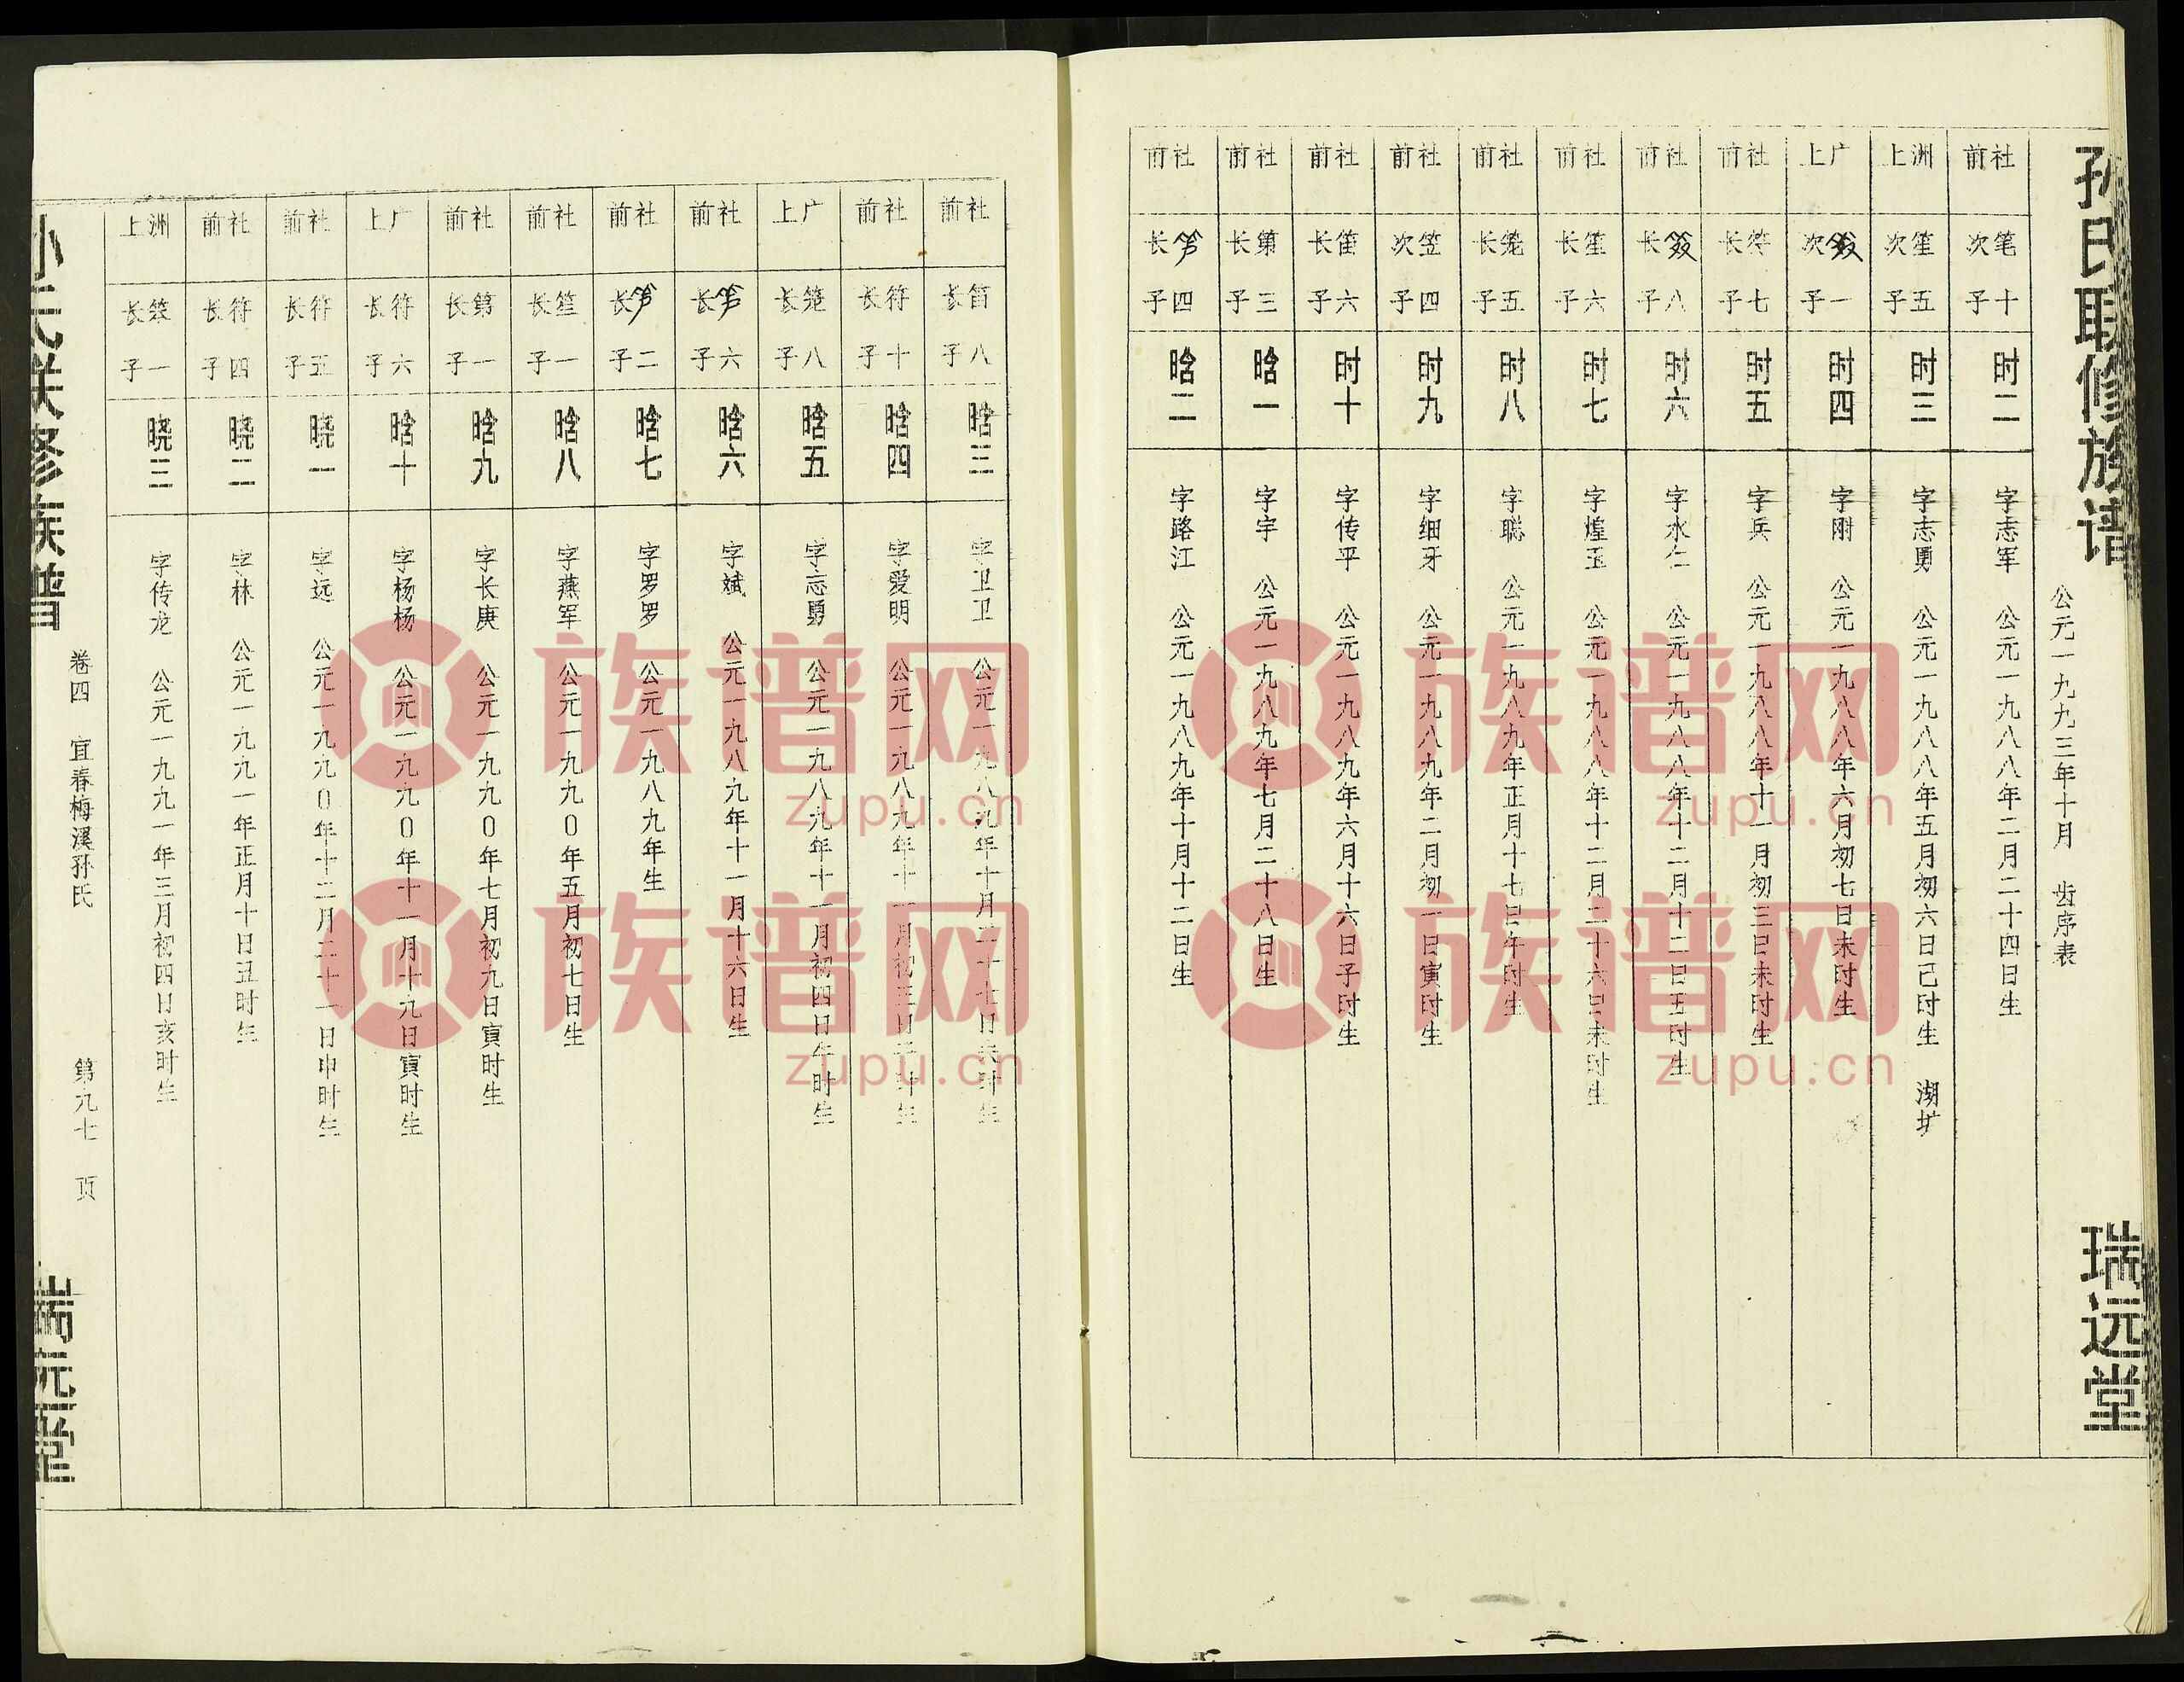 孙氏联修族谱
瑞远堂
公元一九九三年十月 齿序表
社前 笔十次子 时二 字志军 公元一九八八年二月二十四日生
洲上 笙五次子 时三 字志勇 公元一九八八年五月初六日已时生 湖圹
广上 笈一次子 时四 字刚 公元一九八八年六月初七日未时生
社前 符七长子 时五 字兵 公元一九八八年十一月初三日未时生
社前 笈八长子 时六 字水仁 公元一九八八年十二月十二日丑时生
社前 笙六长子 时七 字煌玉 公元一九八八年十二月二十六日未时生
社前 笼五长子 时八 字聪 公元一九八九年正月十七日午时生
社前 笠四次子 时九 字细牙 公元一九八九年二月初一日寅时生
社前 六长子 时十 字传平 公元一九八九年六月十六日子时生
社前 第三长子 晗一 字宇 公元一九八九年七月二十八日生
社前 四长子 晗二 字路江 公元一九八九年十月十二日生
社前 笛八长子 晗三 字卫卫 公元一九八九年十月二十七日时生
社前 符十长子 晗四 字爱明 公元一九八九年十一月初三日子时生
广上 笼八长子 晗五 字志勇 公元一九八九年十一月初四日午时生
社前 六长子 晗六 字斌 公元一九八九年十一月十六日生
社前 二长子 晗七 字罗罗 公元一九八九年生
社前 笙一长子 晗八 字燕军 公元一九九0年五月初七日生
社前 第一长子 晗九 字长庚 公元一九九0年七月初九日寅时生
广上 符六长子 晗十 字杨杨 公元一九九0年十一月十九日寅时生
社前 符五长子 晓一 字远 公元一九九0年十二月二十一日申时生
社前 符四长子 晓二 字林 公元一九九一年正月十日丑时生
洲上 笨一长子 晓三 字传龙 公元一九九一年三月初四日亥时生
孙氏联修族谱
卷四 宜春梅溪孙氏 第九七 页
瑞远堂
族谱网
zupu.cn
族谱网
zupu.cn
族谱网
zupu.cn
族谱网
zupu.cn